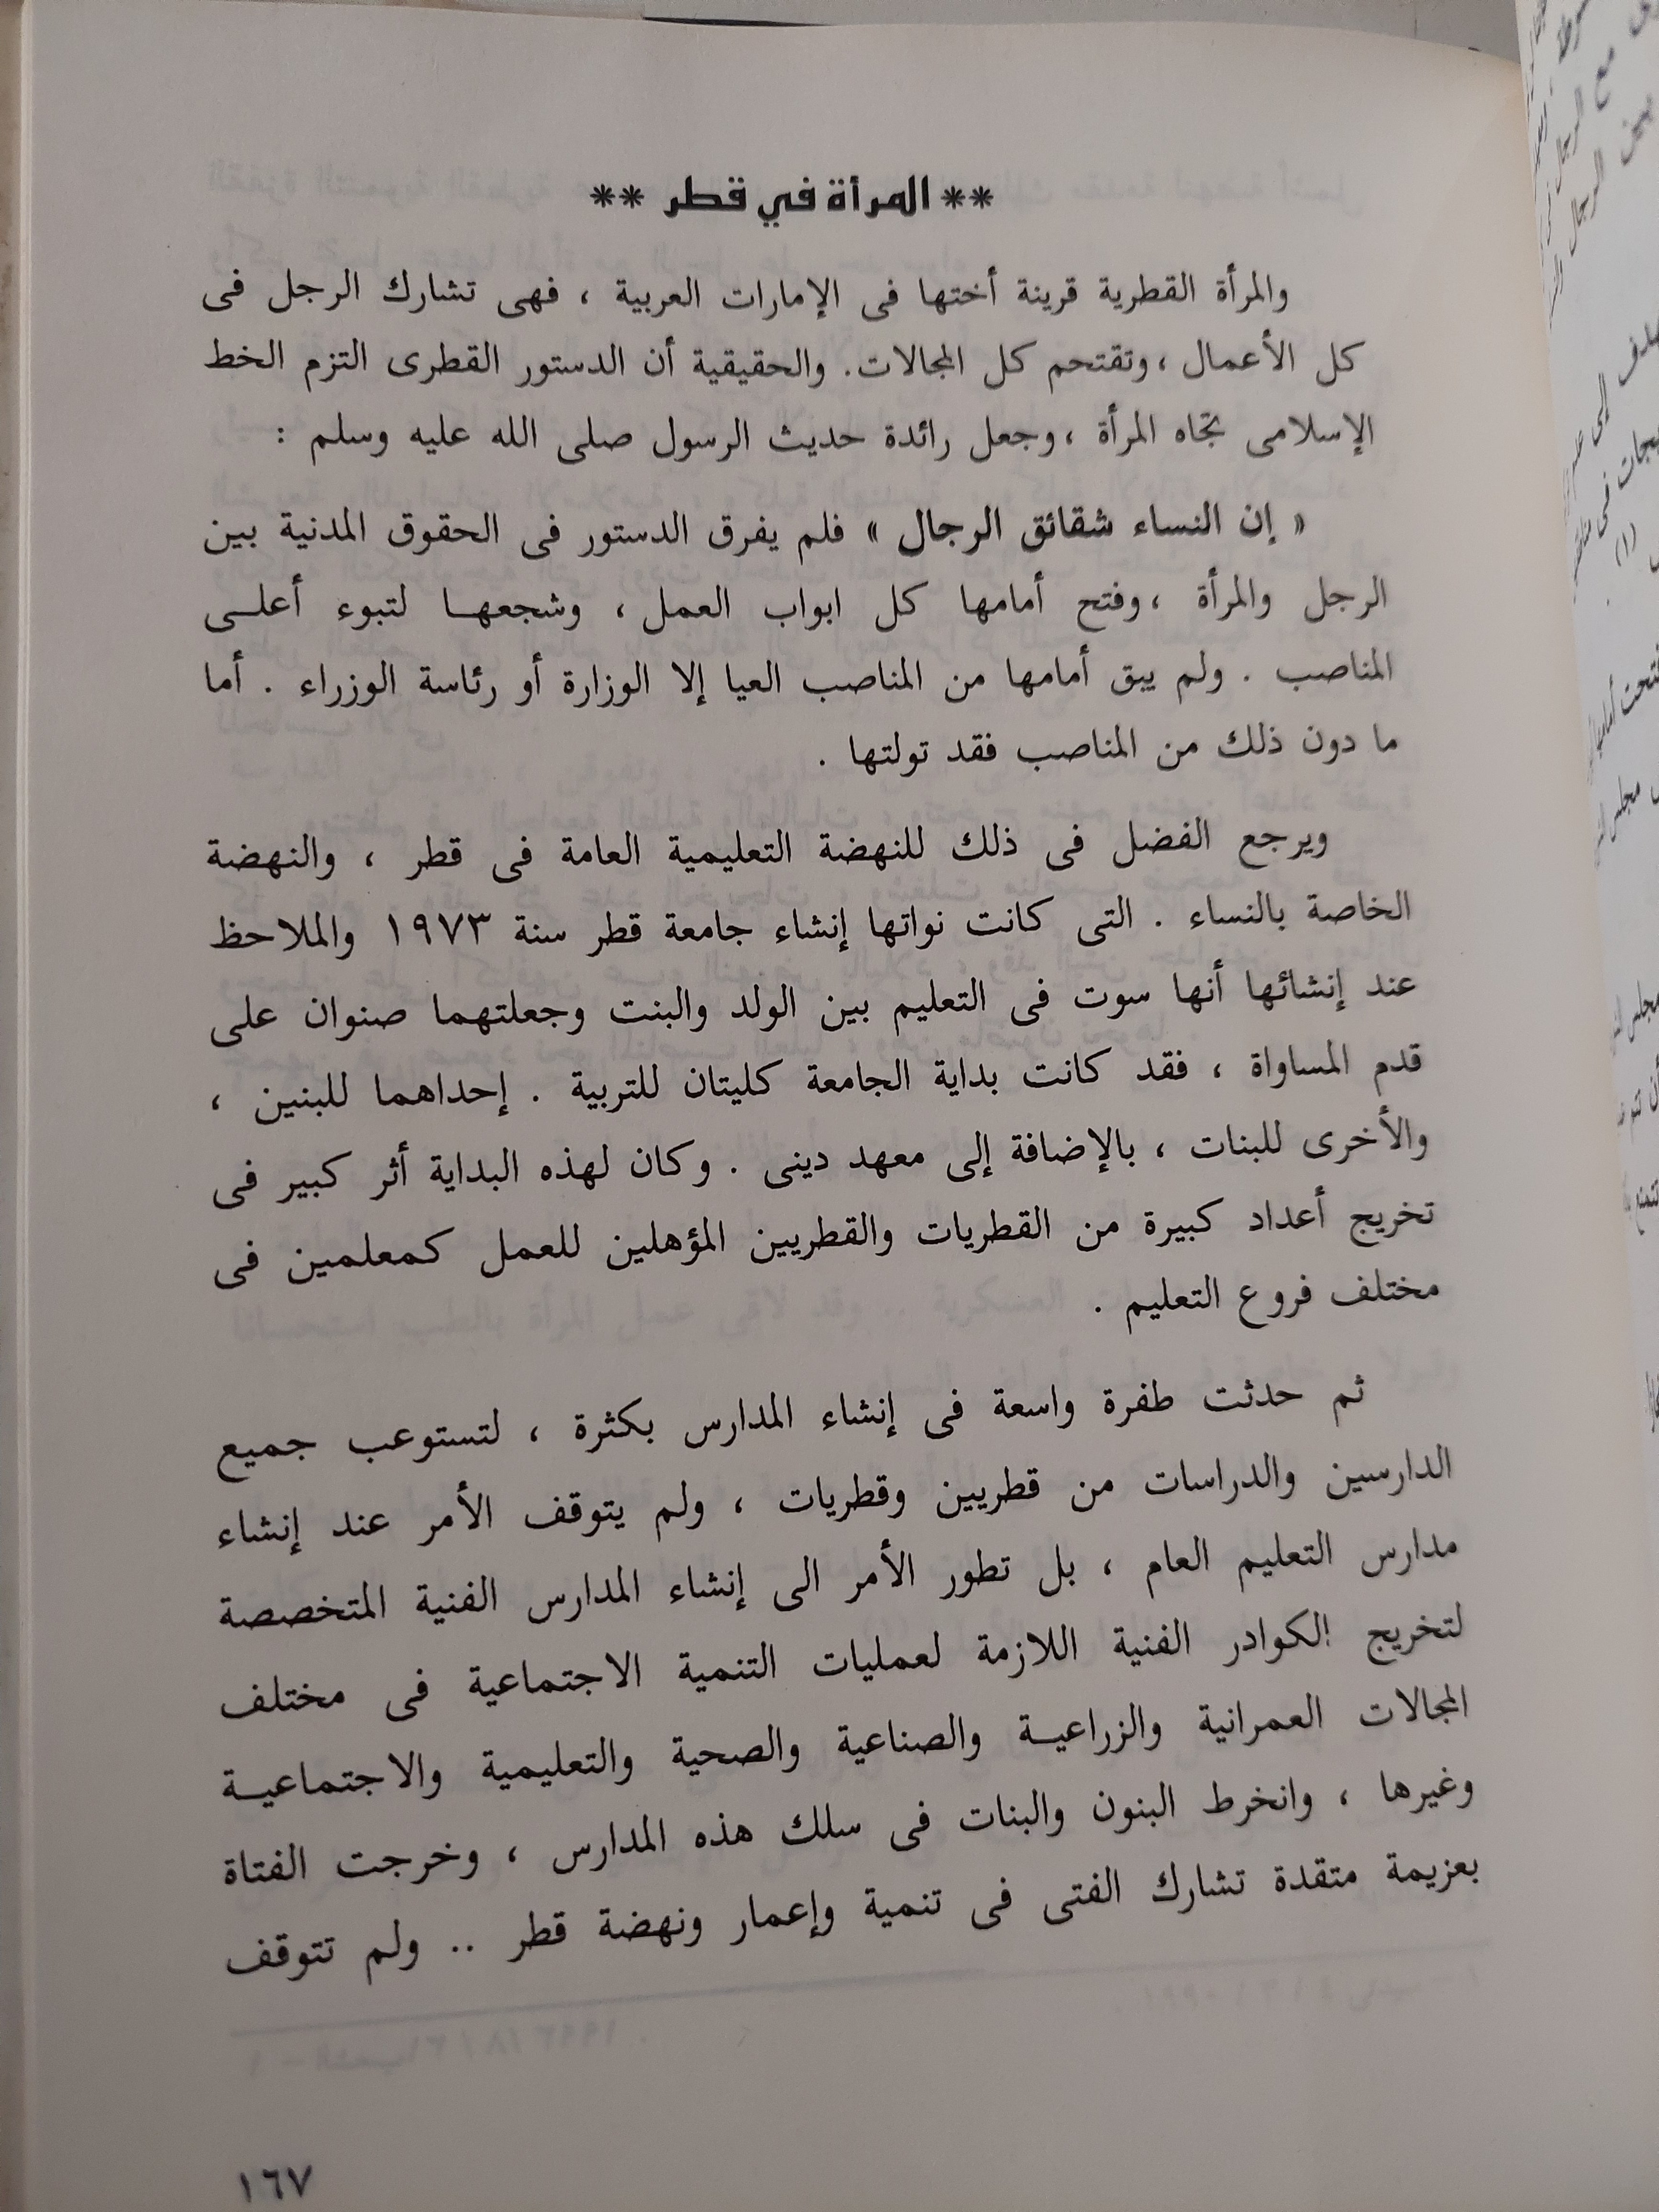 ** المرأة في قطر **
والمرأة القطرية قرينة أختها فى الإمارات العربية ، فهى تشارك الرجل فى
كل الأعمال ، وتقتحم كل المجالات. والحقيقية أن الدستور القطرى التزم الخط
الإسلامى تجاه المرأة ، وجعل رائدة حديث الرسول صلى الله عليه وسلم :
« إن النساء شقائق الرجال » فلم يفرق الدستور فى الحقوق المدنية بين
الرجل والمرأة ، وفتح أمامها كل ابواب العمل ، وشجعهـا لتبوء أعلـى
المناصب . ولم يبق أمامها من المناصب العيا إلا الوزارة أو رئاسة الوزراء . أما
ما دون ذلك من المناصب فقد تولتها .
ويرجع الفضل فى ذلك للنهضة التعليمية العامة فى قطر ، والنهضة
الخاصة بالنساء . التى كانت نواتها إنشاء جامعة قطر سنة ١٩٧٣ والملاحظ
عند إنشائها أنها سوت فى التعليم بين الولد والبنت وجعلتهما صنوان على
قدم المساواة ، فقد كانت بداية الجامعة كليتان للتربية . إحداهما للبنين ،
والأخرى للبنات ، بالإضافة إلى معهد دينى . وكان لهذه البداية أثر كبير فى
تخريج أعداد كبيرة من القطريات والقطريين المؤهلين للعمل كمعلمين فى
مختلف فروع التعليم .
ثم حدثت طفرة واسعة فى إنشاء المدارس بكثرة ، لتستوعب جميع
الدارسين والدراسات من قطريين وقطريات ، ولم يتوقف الأمر عند إنشاء
مدارس التعليم العام ، بل تطور الأمر الى إنشاء المدارس الفنية المتخصصة
لتخريج الكوادر الفنية اللازمة لعمليات التنمية الاجتماعية فى مختلف
المجالات العمرانية والزراعيـة والصناعية والصحية والتعليمية والاجتماعيـة
وغيرها ، وانخرط البنون والبنات فى سلك هذه المدارس ، وخرجت الفتاة
بعزيمة متقدة تشارك الفتى فى تنمية وإعمار ونهضة قطر .. ولم تتوقف
١٦٧